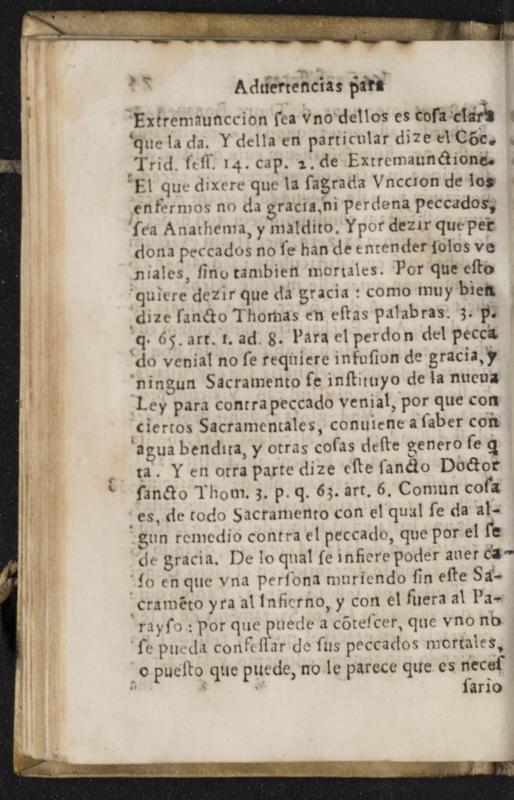 Aduertencias para
Extremaunccion sea vno dellos es cosa clara
que la da. Y della en particular dize el Cõc.
Trid. sess. 14. cap. 2. de Extremaunctione.
El que dixere que la sagrada Vnccion de los
enfermos no da gracia, ni perdena peccados,
sea Anathema, y maldito. Y por dezir que per
dona peccados no se han de entender solos ve
niales, sino tambien mortales. Por que esto
quiere dezir que da gracia : como muy bien
dize sancto Thomas en estas palabras. 3. p.
q. 65. art. 1. ad. 8. Para el perdon del pecca
do venial no se requiere infusion de gracia, y
ningun Sacramento se instituyo de la nueua
Ley para contra peccado venial, por que con
ciertos Sacramentales, conuiene a saber con
agua bendita, y otras cosas deste genero se q̃
ta. Y en otra parte dize este sancto Doctor
sancto Thom. 3. p. q. 63. art. 6. Comun cosa
es, de todo Sacramento con el qual se da al-
gun remedio contra el peccado, que por el se
de gracia. De lo qual se infiere poder auer ca-
so en que vna persona muriendo sin este Sa-
cramẽto yra al Infierno, y con el fuera al Pa-
rayso : por que puede a cõtescer, que vno no
se pueda confessar de sus peccados mortales,
o puesto que puede, no le parece que es neces
sario